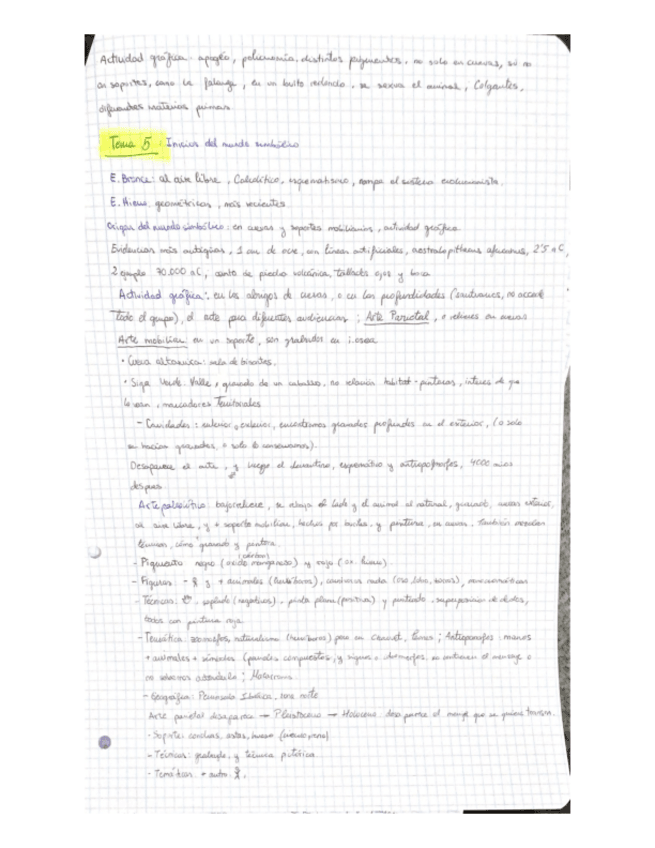 Actividad gráfica: apogeo, policromía, distintos pigmentos, no solo en cuevas, si no
en soportes, como la falange, en un bulto redondo. se sexua el animal, Colgantes,
diferentes materias primas
Tema 5: Inicios del mundo simbólico
E. Bronce: al aire libre, Calcolítico, esquematismo, rompe el sistema evolucionista.
E. Hierro. geométricos, más recientes
Origen del mundo simbólico: en cuevas y soportes mobiliarios, actividad gráfica
Evidencias más antiguas, 1 de ocre, con líneas artificiales, australopithecus africanus, 2'5 a C,
2 ejemplo 70.000 a C, canto de piedra volcánica, tallados ojos y boca
Actividad gráfica: en los abrigos de cuevas, o en las profundidades (no accede
todo el grupo), el arte para diferentes audiencias; Arte Parietal, o relieves en cuevas
Arte mobiliar: en un soporte, son grabados en
• Cueva altamira: sala de bisontes.
• Siega Verde. Valle, grabado de un caballo, no relación habitat-pinturas, interés de que
lo vean, marcadores Territoriales
- Cavidades: exterior, encontramos grabados profundos en el exterior, (o solo
se hacían grabados, o solo lo conservamos).
Desaparece el arte, y luego el levantino, esquemático y antropomorfos, 4000 años
despues
Arte paleolítico. bajorrelieve, se aboja el lado y el animal al natural, cuevas exterior,
al aire libre, y + soporte mobiliar, hechos por buriles, y pintura, en cuevas. También mezclan
técnicas, cómo grabado y pintura
- Pigmento negro (oxido manganeso) (carbón) y rojo (ox hierro)
- Figuras - y + animales (herbívoros), carnívoros nada (oso, lobo, zorros),
- Técnicas: soplado (negativos). pinta plana (positiva) y punteado. superposición de dedos,
todos con pintura roja
- Temática. zoomorfos naturalismo (herbívoros) pero sin; Antropomorfos. manos
+ animales + símbolos (paneles compuestos, y signos o, se entienen el mensaje o
no sabemos; Macarronis
- Geografía: Península Ibérica, zona norte
Arte parietal desaparece → Pleistoceno → Holoceno. desaparece el mensaje que se quiere transm.
- Soportes: conchas, astas, hueso
- Técnicas: grabado, y técnica pictórica
- Temáticas. + antro